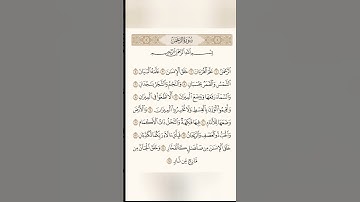 سورة الرحمن
بسم الله الرحمن الرحيم
الرحمن ١ علم القرءان ٢ خلق الإنسن ٣ علمه البيان ٤
الشمس والقمر بحسبان ٥ والنجم والشجر يسجدان ٦
والسماء رفعها ووضع الميزان ٧ ألا تطغوا في الميزان ٨
وأقيموا الوزن بالقسط ولا تخسروا الميزان ٩ والأرض
وضعها للأنام ١٠ فيها فكهة والنخل ذات الأكمام ١١
والحب ذو العصف والريحان ١٢ فبأي ءالاء ربكما تكذبان ١٣
خلق الإنسن من صلصل كالفخار ١٤ وخلق الجان من
مارج من نار ١٥